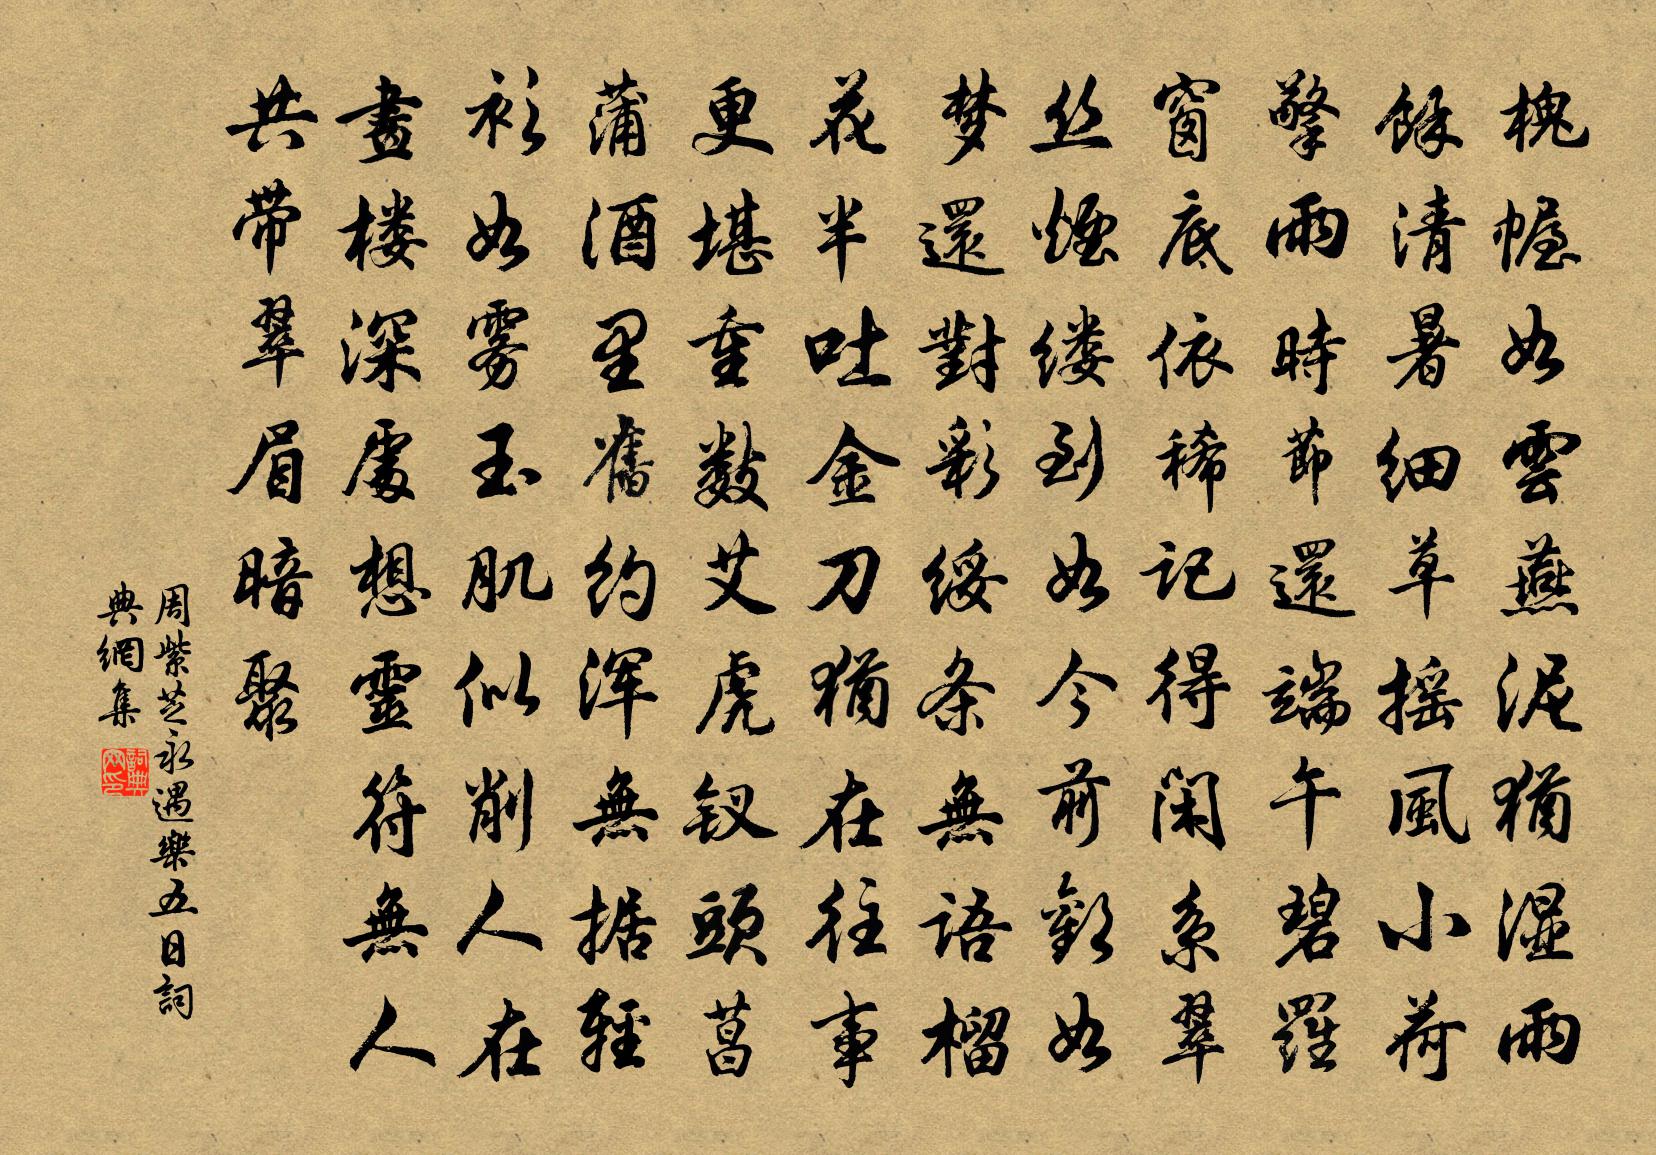 槐幄如雲燕泥猶湿雨
餘清暑细草摇風小荷
擎雨時節還端午碧羅
窗底依稀记得闲系翠
丝煙缕到如今前歡如
梦還對彩绥条無語榴
花半吐金刀猶在往事
更堪重数艾虎钗頭菖
蒲酒里舊约浑無据輕
衫如雾玉肌似削人在
畫楼深處想靈符無人
共带翠眉暗聚
周紫芝永遇樂五日詞
典網集
詞典网印